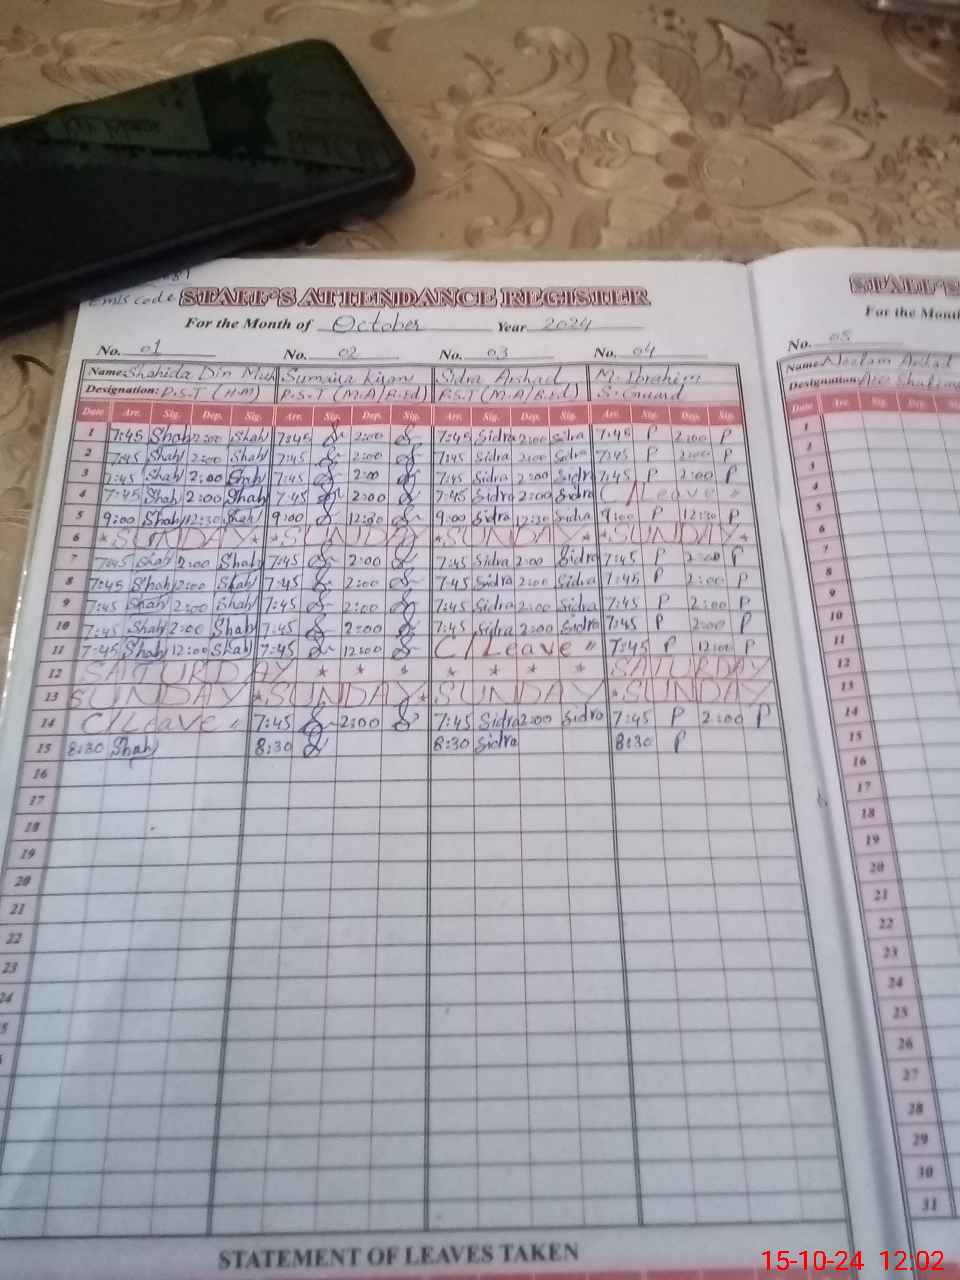 Emis code STAFF'S ATTENDANCE REGISTER
For the Month of October Year 2024
No. 01 No. 02 No. 03 No. 04
Name: Shahida Din Sumaira Kiran Sidra Arshad M. Ibrahim
Designation: P.S.T (H.M) P.S.T (M.A/B.Ed) P.S.T (M.A/B.Ed) S. Guard
Date Arr. Sig. Dep. Sig. Arr. Sig. Dep. Sig. Arr. Sig. Dep. Sig. Arr. Sig. Dep. Sig.
1 7:45 Shah 2:00 Shah 7:45 2:00 7:45 Sidra 2:00 Sidra 7:45 P 2:00 P
2 7:45 Shah 2:00 Shah 7:45 2:00 7:45 Sidra 2:00 Sidra 7:45 P 2:00 P
3 7:45 Shah 2:00 Shah 7:45 2:00 7:45 Sidra 2:00 Sidra 7:45 P 2:00 P
4 7:45 Shah 2:00 Shah 7:45 2:00 7:45 Sidra 2:00 Sidra C/Leave "
5 9:00 Shah 12:30 Shah 9:00 12:30 9:00 Sidra 12:30 Sidra 9:00 P 12:30 P
6 * SUNDAY * * SUNDAY * * SUNDAY * * SUNDAY *
7 7:45 Shah 2:00 Shah 7:45 2:00 7:45 Sidra 2:00 Sidra 7:45 P 2:00 P
8 7:45 Shah 2:00 Shah 7:45 2:00 7:45 Sidra 2:00 Sidra 7:45 P 2:00 P
9 7:45 Shah 2:00 Shah 7:45 2:00 7:45 Sidra 2:00 Sidra 7:45 P 2:00 P
10 7:45 Shah 2:00 Shah 7:45 2:00 7:45 Sidra 2:00 Sidra 7:45 P 2:00 P
11 7:45 Shah 12:00 Shah 7:45 12:00 C/Leave " 7:45 P 12:00 P
12 SATURDAY * * * * * * SATURDAY
13 SUNDAY * SUNDAY * SUNDAY * SUNDAY
14 C/Leave " 7:45 2:00 7:45 Sidra 2:00 Sidra 7:45 P 2:00 P
15 8:30 Shah 8:30 8:30 Sidra 8:30 P
16
17
18
19
20
21
22
23
24
STATEMENT OF LEAVES TAKEN
STAFF'S
For the Mont
No. 05
Name: Neelam
Designation:
Date Arr. Sig. Dep.
1
2
3
4
5
6
7
8
9
10
11
12
13
14
15
16
17
18
19
20
21
22
23
24
25
26
27
28
29
30
31
15-10-24 12:02